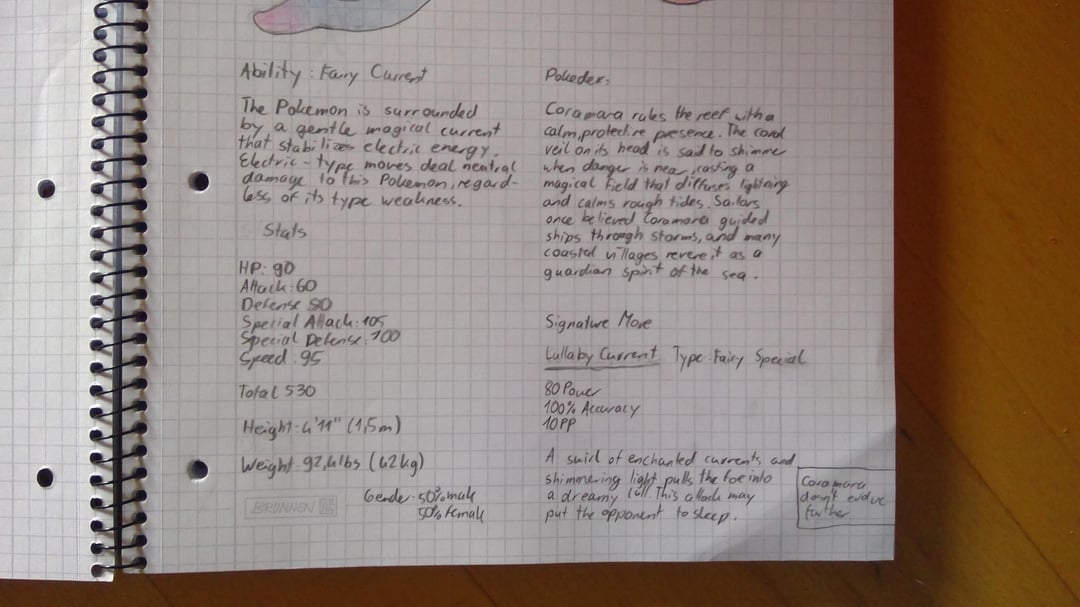 Ability : Fairy Current
The Pokemon is surrounded
by a gentle magical current
that stabilizes electric energy.
Electric-type moves deal neutral
damage to this Pokemon, regard-
less of its type weakness.
Stats
HP: 90
Attack: 60
Defense 80
Special Attack: 105
Special Defense: 100
Speed: 95
Total 530
Height: 4'11" (1,5m)
Weight: 92,4lbs (42kg)
Gender: 50% male
50% female
BRUNNEN
Pokedex:
Coramara rules the reef with a
calm, protective presence. The coral
veil on its head is said to shimmer
when danger is near, casting a
magical field that diffuses lightning
and calms rough tides. Sailors
once believed Coramara guided
ships through storms, and many
coastal villages revere it as a
guardian spirit of the sea.
Signature Move
Lullaby Current Type: Fairy Special
80 Power
100% Accuracy
10 PP
A swirl of enchanted currents and
shimmering light pulls the foe into
a dreamy lull. This attack may
put the opponent to sleep.
Coramara
doesn't evolve
further